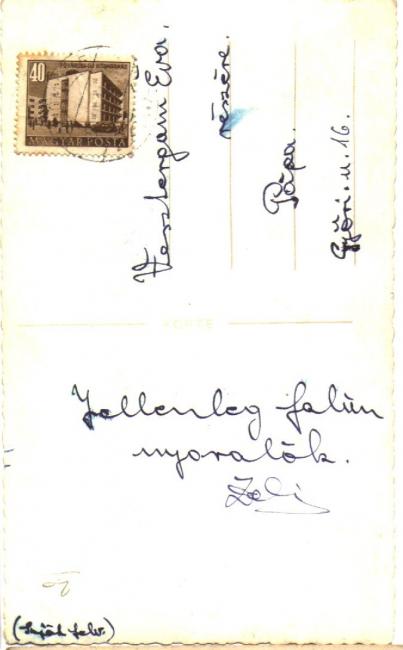 40
MAGYAR POSTA
Vesztergam Éva
részére.
Pápa.
Győri. u. 16.
Jellenleg falun
nyaralök.
Zoli
(Saját felv.)